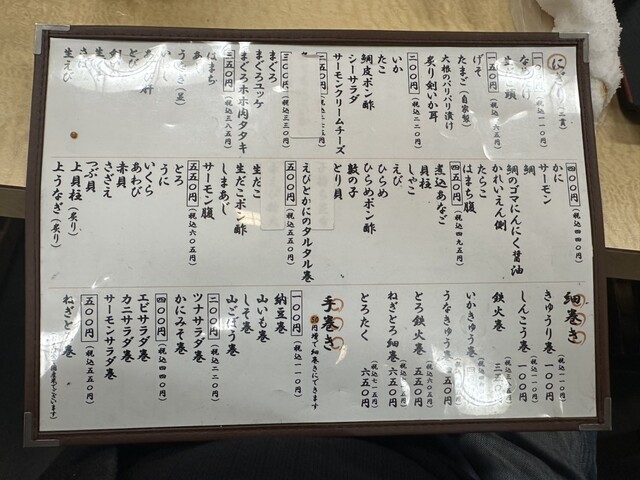 にぎり（二貫）
（税込一一〇円）
一五〇円（税込一六五円）
げそ
たまご（自家製）
大根のパリパリ漬け
炙り剣いか耳
二〇〇円（税込二二〇円）
いか
たこ
鯛皮ポン酢
シーサラダ
サーモンクリームチーズ
二五〇円
三〇〇円（税込三三〇円）
まぐろ
まぐろユッケ
まぐろホホ肉タタキ
三五〇円（税込三八五円）
はまち
うなぎ
生えび
四〇〇円（税込四四〇円）
かに
サーモン
鯛
鯛のゴマにんにく醤油
かれいえん側
たらこ
はまち腹
四五〇円（税込四九五円）
煮込あなご
貝柱
しゃこ
えび
ひらめ
ひらめポン酢
数の子
とり貝
えびとかにのタルタル巻
五〇〇円（税込五五〇円）
生だこ
生だこポン酢
しまあじ
サーモン腹
五五〇円（税込六〇五円）
とろ
うに
いくら
あわび
赤貝
さざえ
つぶ貝
上貝柱（炙り）
上うなぎ（炙り）
細巻き
きゅうり巻 一〇〇円（税込一一〇円）
しんこう巻 一〇〇円
鉄火巻
いかきゅう巻
うなきゅう巻
とろ鉄火巻 五五〇円（税込六〇五円）
ねぎとろ細巻 六五〇円
とろたく 六五〇円（税込七一五円）
手巻き
50円増で細巻きにできます
一〇〇円（税込一一〇円）
納豆巻
山いも巻
しそ巻
山ごぼう巻
二〇〇円（税込二二〇円）
ツナサラダ巻
かにみそ巻
四〇〇円（税込四四〇円）
エビサラダ巻
カニサラダ巻
サーモンサラダ巻
五〇〇円（税込五五〇円）
ねぎとろ巻